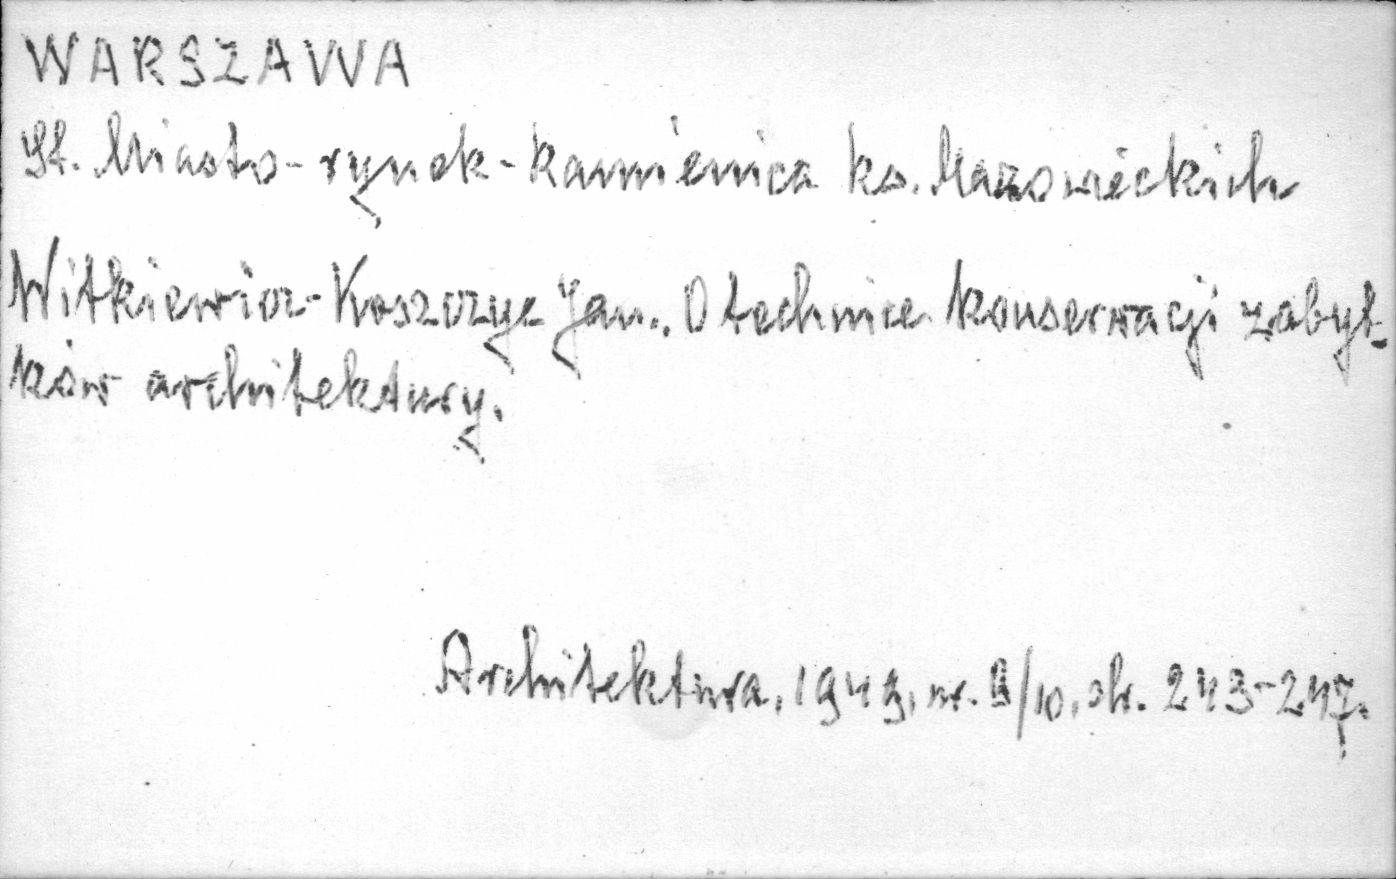 WARSZAWA
St. Miasto - rynek - kamienica ks. Mazowieckich
Witkiewicz-Koszczyc Jan., O technice konserwacji zabyt-
ków architektury.
Architektura, 1949, nr. 9/10, str. 243-247.